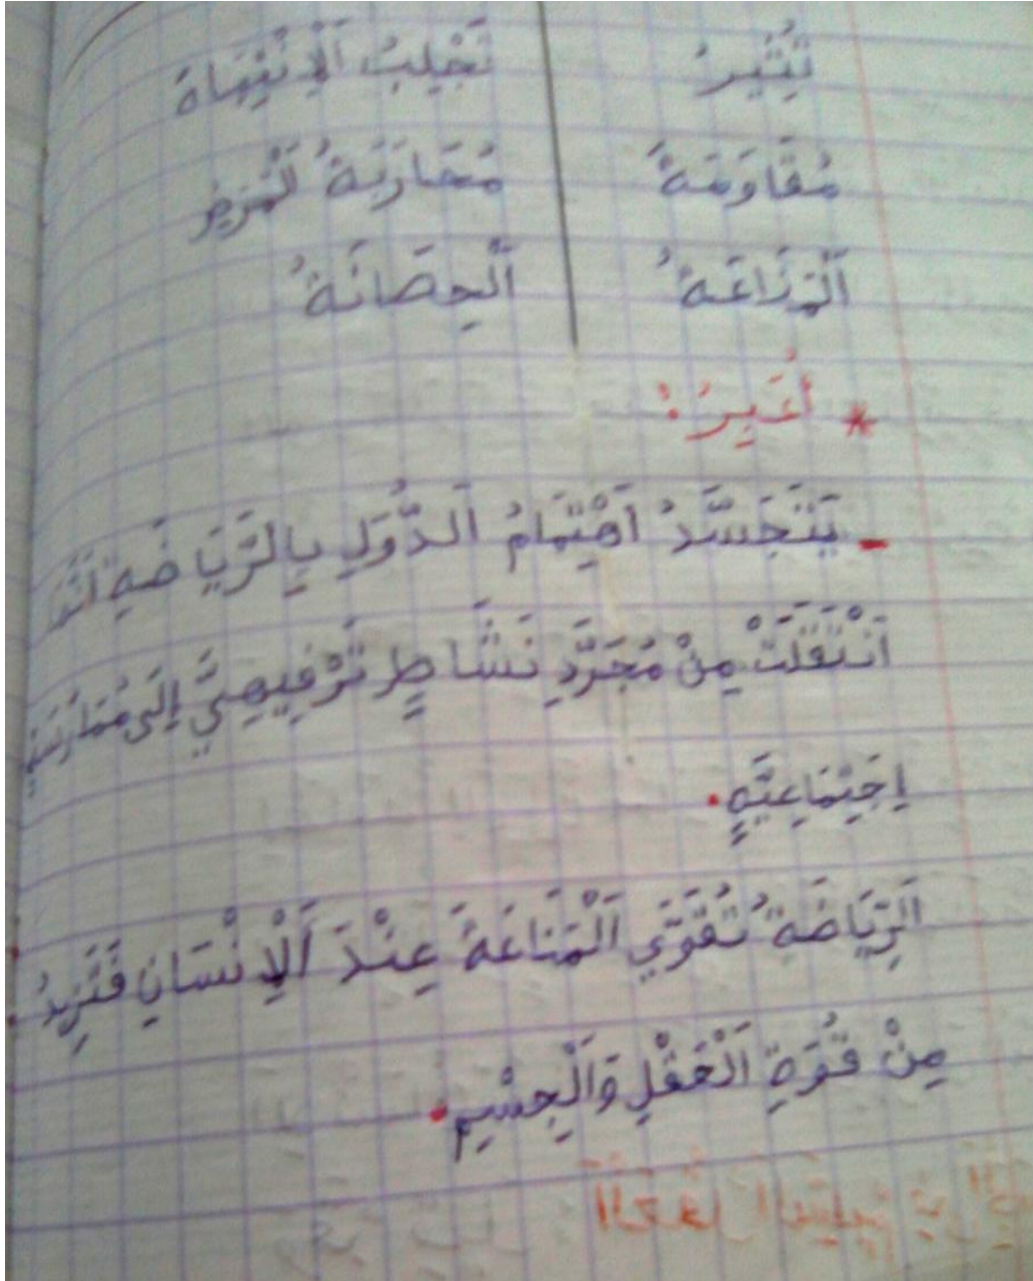 تُثِيرُ تَجْلِبُ اَلْاِنْتِبَاهَ
مُقَاوَمَةٌ مُحَارَبَةُ الْمَرَضِ
اَلْمَنَاعَةُ اَلْحِصَانَةُ
* أُعَبِّرُ:
- يَتَجَسَّدُ اَهْتِمَامُ اَلدُّوَلِ بِالرِّيَاضَةِ
اَنْتَقَلَتْ مِنْ مُجَرَّدِ نَشَاطٍ تَرْفِيهِيٍّ إِلَى مُمَارَسَةٍ
اِجْتِمَاعِيَّةٍ.
اَلرِّيَاضَةُ تُقَوِّي اَلْمَنَاعَةَ عِنْدَ اَلْإِنْسَانِ فَتَزِيدُ
مِنْ قُوَّةِ اَلْعَقْلِ وَالْجِسْمِ.